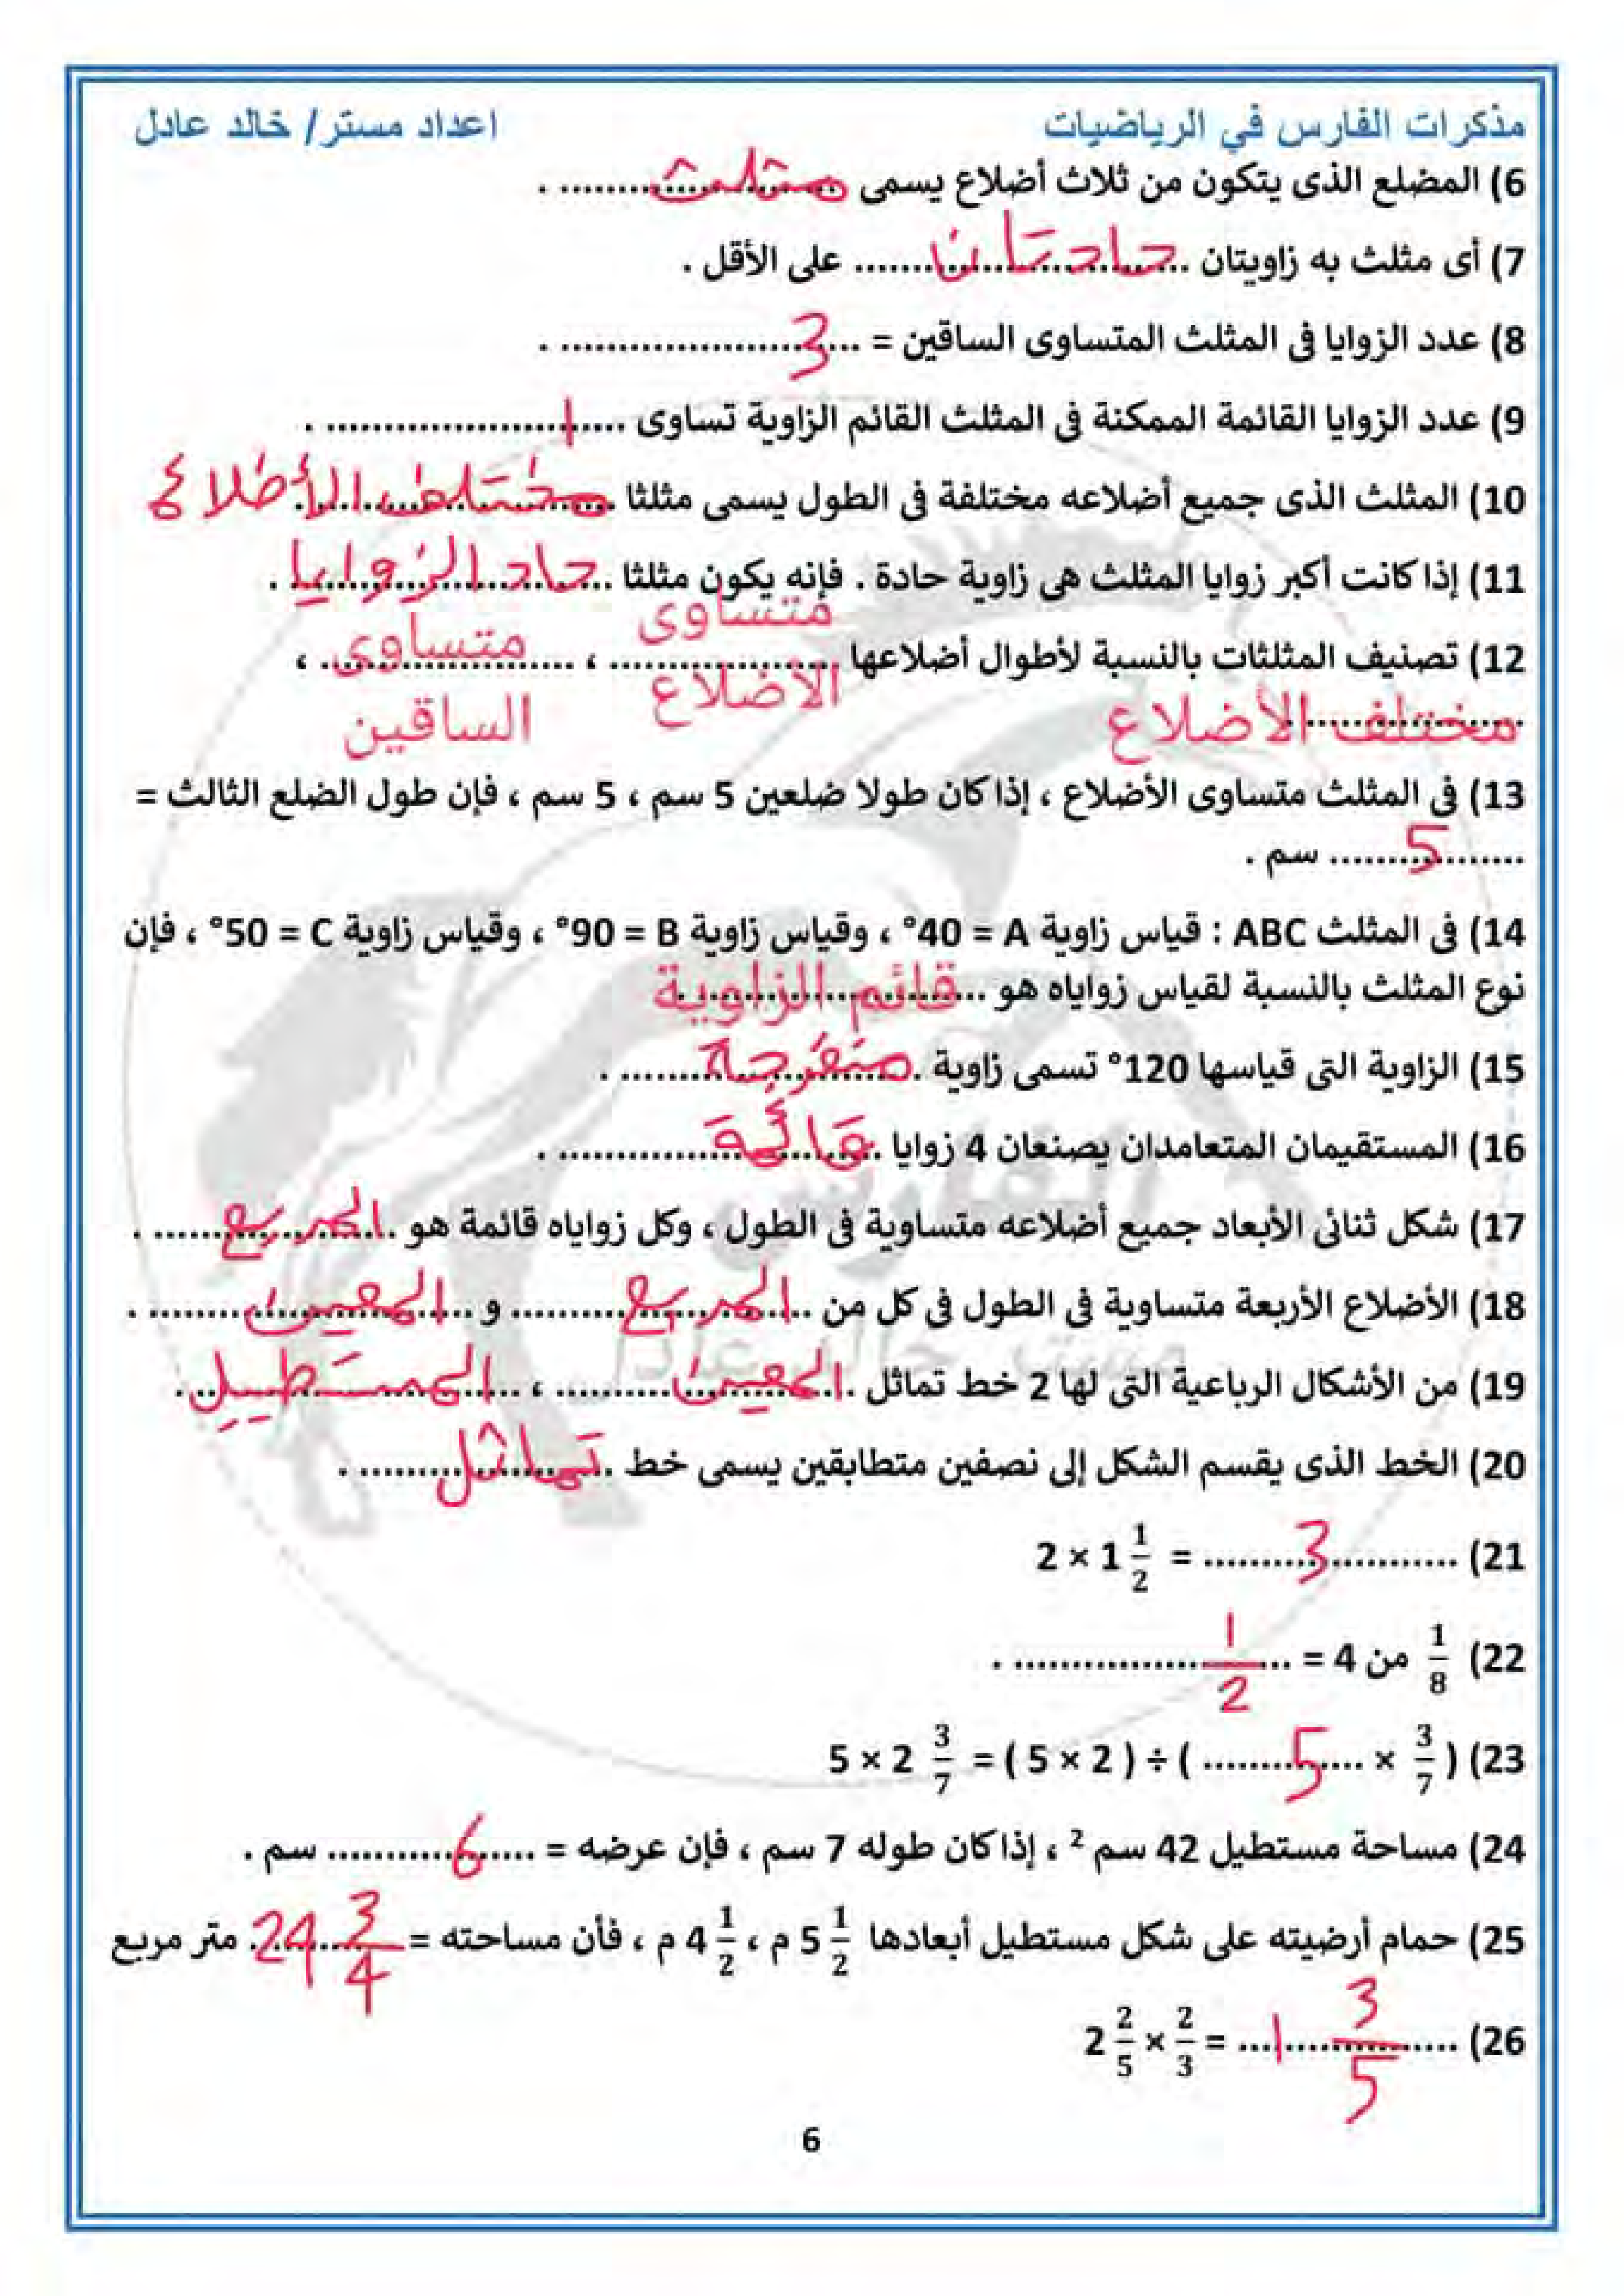 مذكرات الفارس في الرياضيات اعداد مستر/ خالد عادل
6) المضلع الذى يتكون من ثلاث أضلاع يسمى ...... مثلث ...... .
7) أى مثلث به زاويتان ...... حادتان ...... على الأقل .
8) عدد الزوايا فى المثلث المتساوى الساقين = ...... 3 ...... .
9) عدد الزوايا القائمة الممكنة فى المثلث القائم الزاوية تساوى ...... 1 ...... .
10) المثلث الذى جميع أضلاعه مختلفة فى الطول يسمى مثلثا ...... مختلف الأضلاع
11) إذا كانت أكبر زوايا المثلث هى زاوية حادة . فإنه يكون مثلثا ...... حاد الزوايا ...... .
12) تصنيف المثلثات بالنسبة لأطوال أضلاعها ...... متساوى الأضلاع ...... ، ...... متساوى الساقين ...... ،
...... مختلف الأضلاع
13) فى المثلث متساوى الأضلاع ، إذا كان طولا ضلعين 5 سم ، 5 سم ، فإن طول الضلع الثالث =
...... 5 ...... سم .
14) فى المثلث ABC : قياس زاوية A = 40° ، وقياس زاوية B = 90° ، وقياس زاوية C = 50° ، فإن
نوع المثلث بالنسبة لقياس زواياه هو ...... قائم الزاوية
15) الزاوية التى قياسها 120° تسمى زاوية ...... منفرجة ...... .
16) المستقيمان المتعامدان يصنعان 4 زوايا ...... قائمة ...... .
17) شكل ثنائى الأبعاد جميع أضلاعه متساوية فى الطول ، وكل زواياه قائمة هو ...... المربع ...... .
18) الأضلاع الأربعة متساوية فى الطول فى كل من ...... المربع ...... و ...... المعين ...... .
19) من الأشكال الرباعية التى لها 2 خط تماثل ...... المعين ...... ، ...... المستطيل ...... .
20) الخط الذى يقسم الشكل إلى نصفين متطابقين يسمى خط ...... تماثل ...... .
21) 2 × 1 1/2 = ...... 3 ......
22) 1/8 من 4 = ...... 1/2 ...... .
23) 5 × 2 3/7 = ( 5 × 2 ) ÷ ( ...... 5 ...... × 3/7 )
24) مساحة مستطيل 42 سم ² ، إذا كان طوله 7 سم ، فإن عرضه = ...... 6 ...... سم .
25) حمام أرضيته على شكل مستطيل أبعادها 5 1/2 م ، 4 1/2 م ، فأن مساحته = ...... 24 3/4 ...... متر مربع
26) 2 2/5 × 2/3 = ...... 1 3/5 ......
6
الفارس
مستر خالد عادل